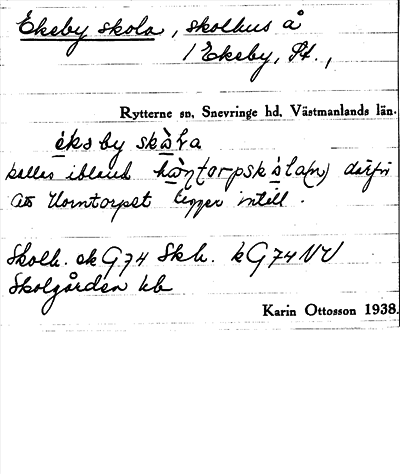 Ekeby skola, skolhus å
1 Ekeby, St.,
Rytterne sn, Snevringe hd, Västmanlands län.
kallas ibland därför
att Horntorpet ligger intill.
Skolh. ek G74 Skh. k G74 NV
Skolgården hb
Karin Ottosson 1938.